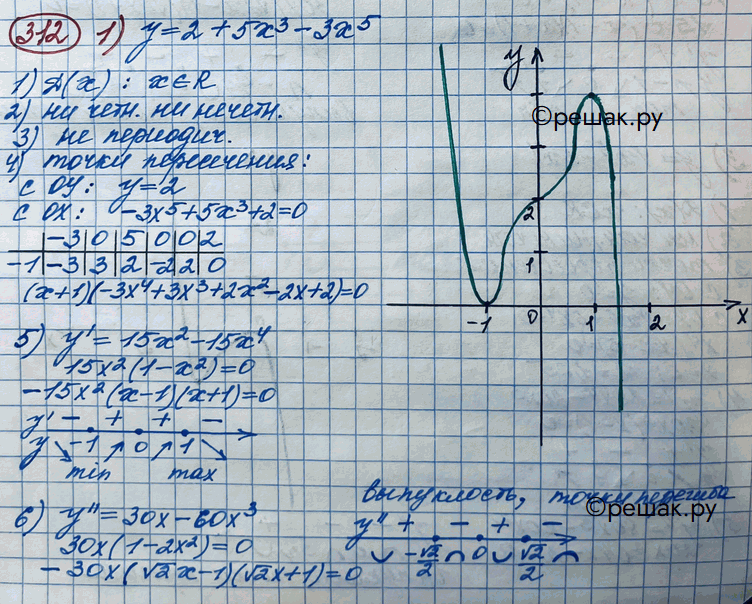 312 1) y = 2 + 5x³ - 3x⁵
1) D(x) : x ∈ R
2) ни четн. ни нечетн.
3) не периодич.
4) точки пересечения:
с OY: y = 2
с OX: -3x⁵ + 5x³ + 2 = 0
-3 | 0 | 5 | 0 | 0 | 2
-1 | -3 | 3 | 2 | -2 | 2 | 0
(x+1)(-3x⁴+3x³+2x²-2x+2)=0
5) y' = 15x² - 15x⁴
15x²(1-x²)=0
-15x²(x-1)(x+1)=0
y' - + + -
y ↘ -1 ↗ 0 ↗ 1 ↘
min max
6) y'' = 30x - 60x³
30x(1-2x²)=0
-30x(√2x-1)(√2x+1)=0
y
©решак.ру
2
1
-1 0 1 2 x
выпуклость, точки перегиба
©решак.ру
y'' + - + -
∪ -√2/2 ∩ 0 ∪ √2/2 ∩